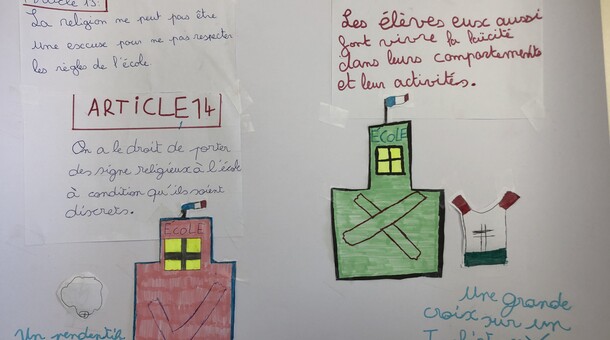 Article 13:
La religion ne peut pas être
une excuse pour ne pas respecter
les règles de l'école.
ARTICLE 14
On a le droit de porter
des signe religieux à l'école
à condition qu'ils soient
discrets.
ECOLE
Un pendentif
Les élèves eux aussi
font vivre la laïcité
dans leurs comportements
et leur activités.
ÉCOLE
Une grande
croix sur un